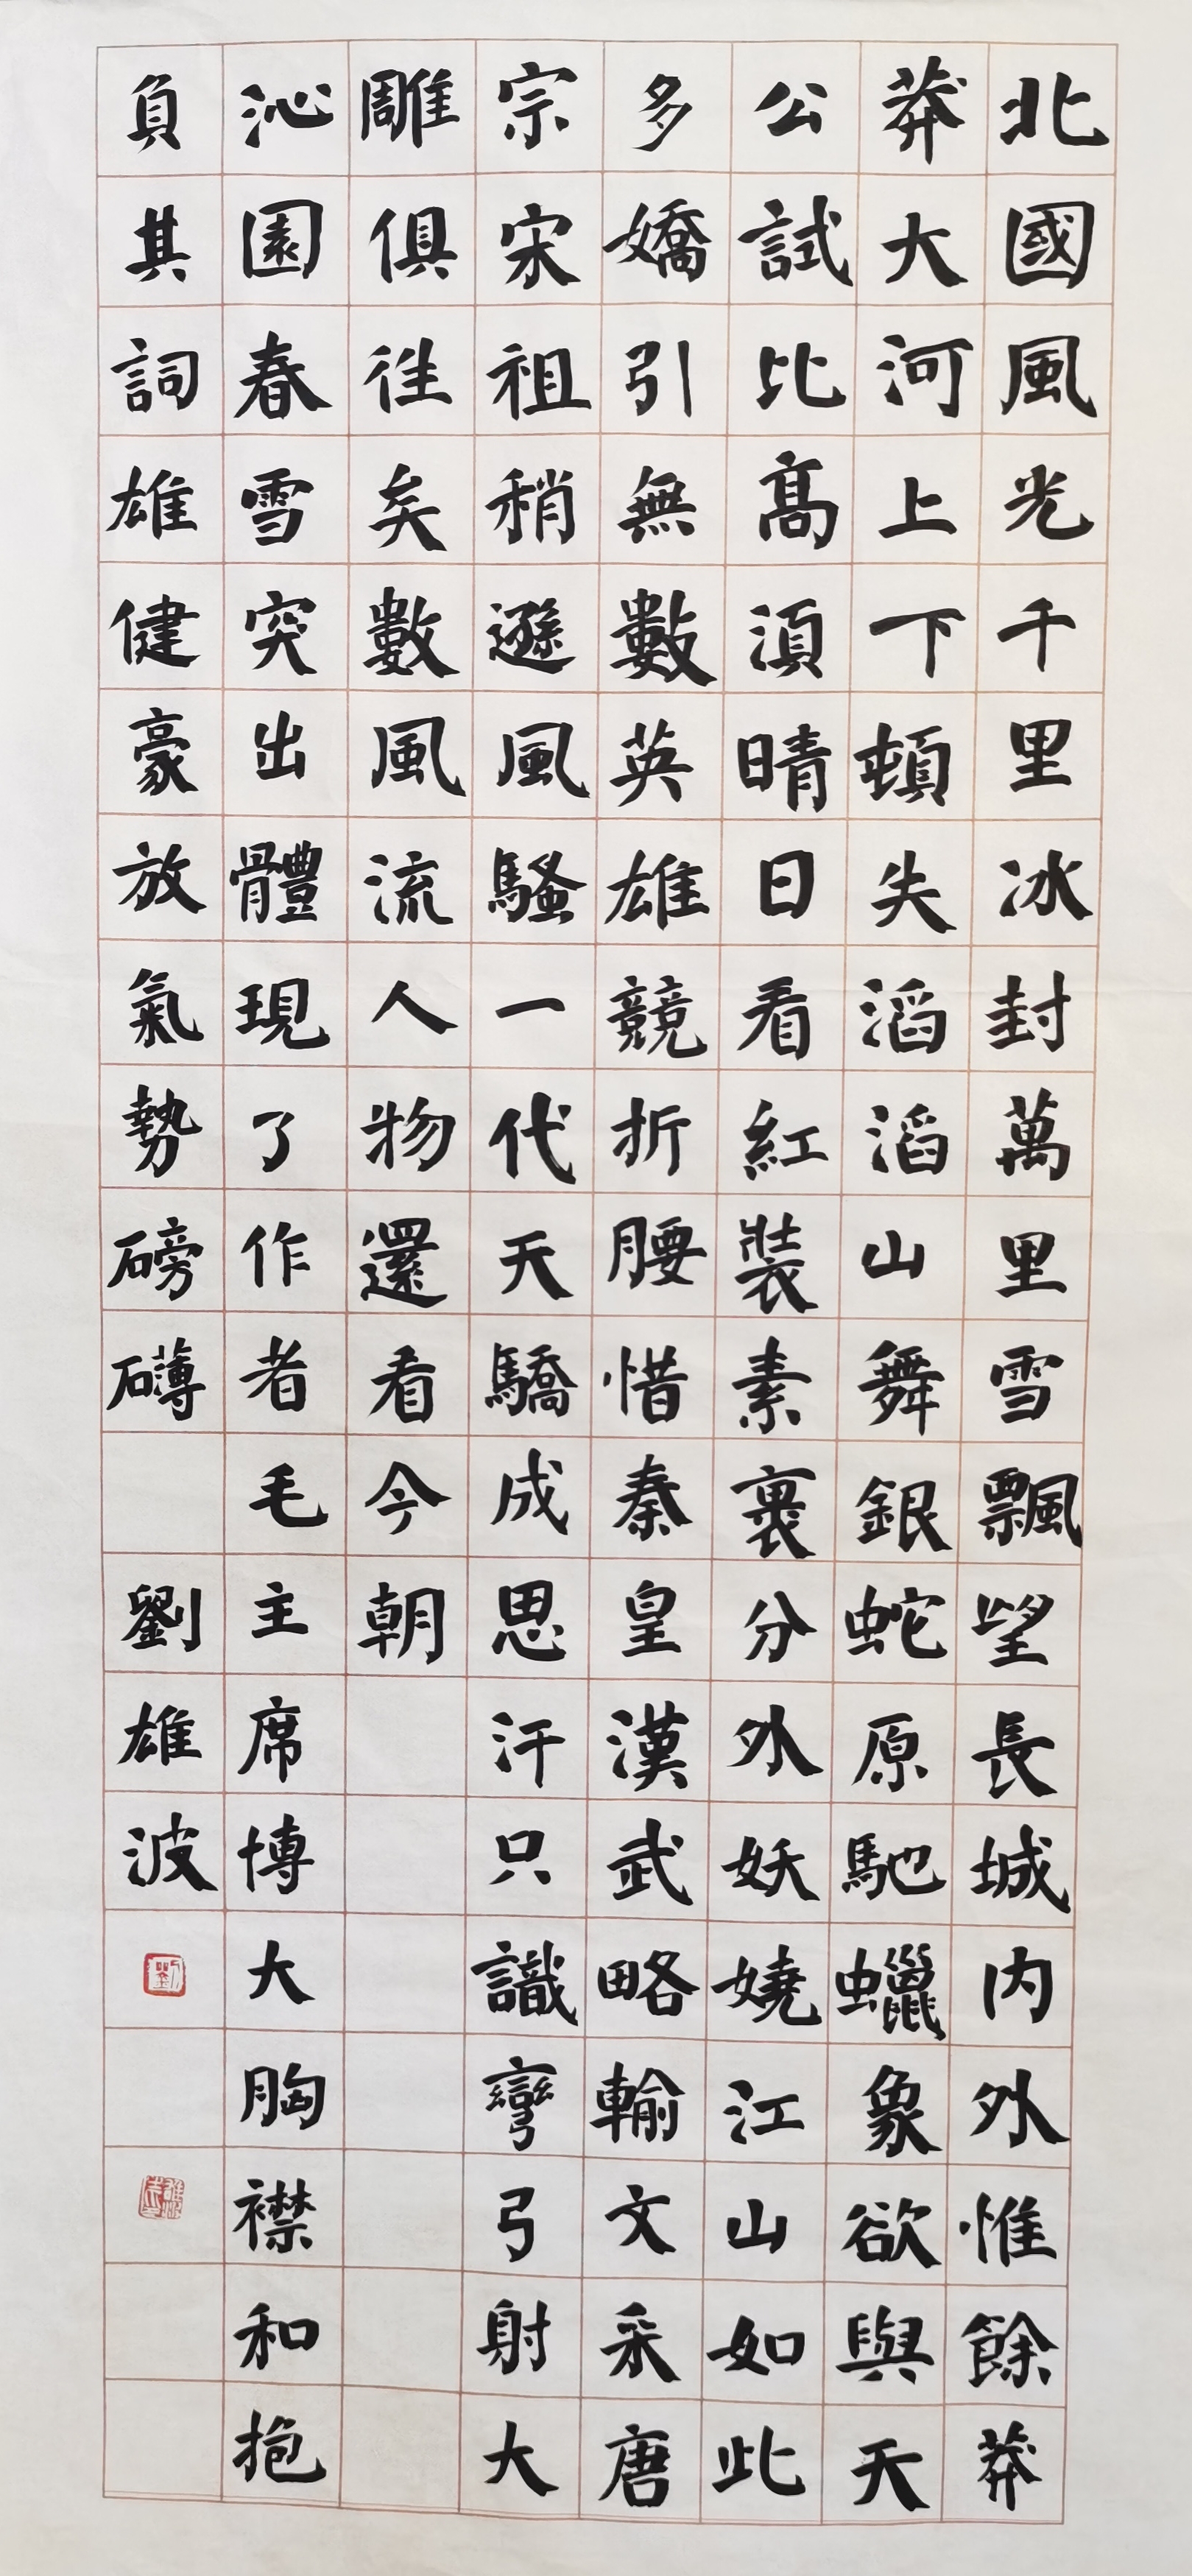 北國風光千里冰封萬里雪飄望長城内外惟餘莽
莽大河上下頓失滔滔山舞銀蛇原馳蠟象欲與天
公試比髙湏晴日看紅裝素裹分外妖嬈江山如此
多嬌引無數英雄競折腰惜秦皇漢武略輸文采唐
宗宋祖稍遜風騷一代天驕成思汗只識彎弓射大
雕俱往矣數風流人物還看今朝
沁園春雪突出體現了作者毛主席博大胸襟和抱
負其詞雄健豪放氣勢磅礴 劉雄波
劉